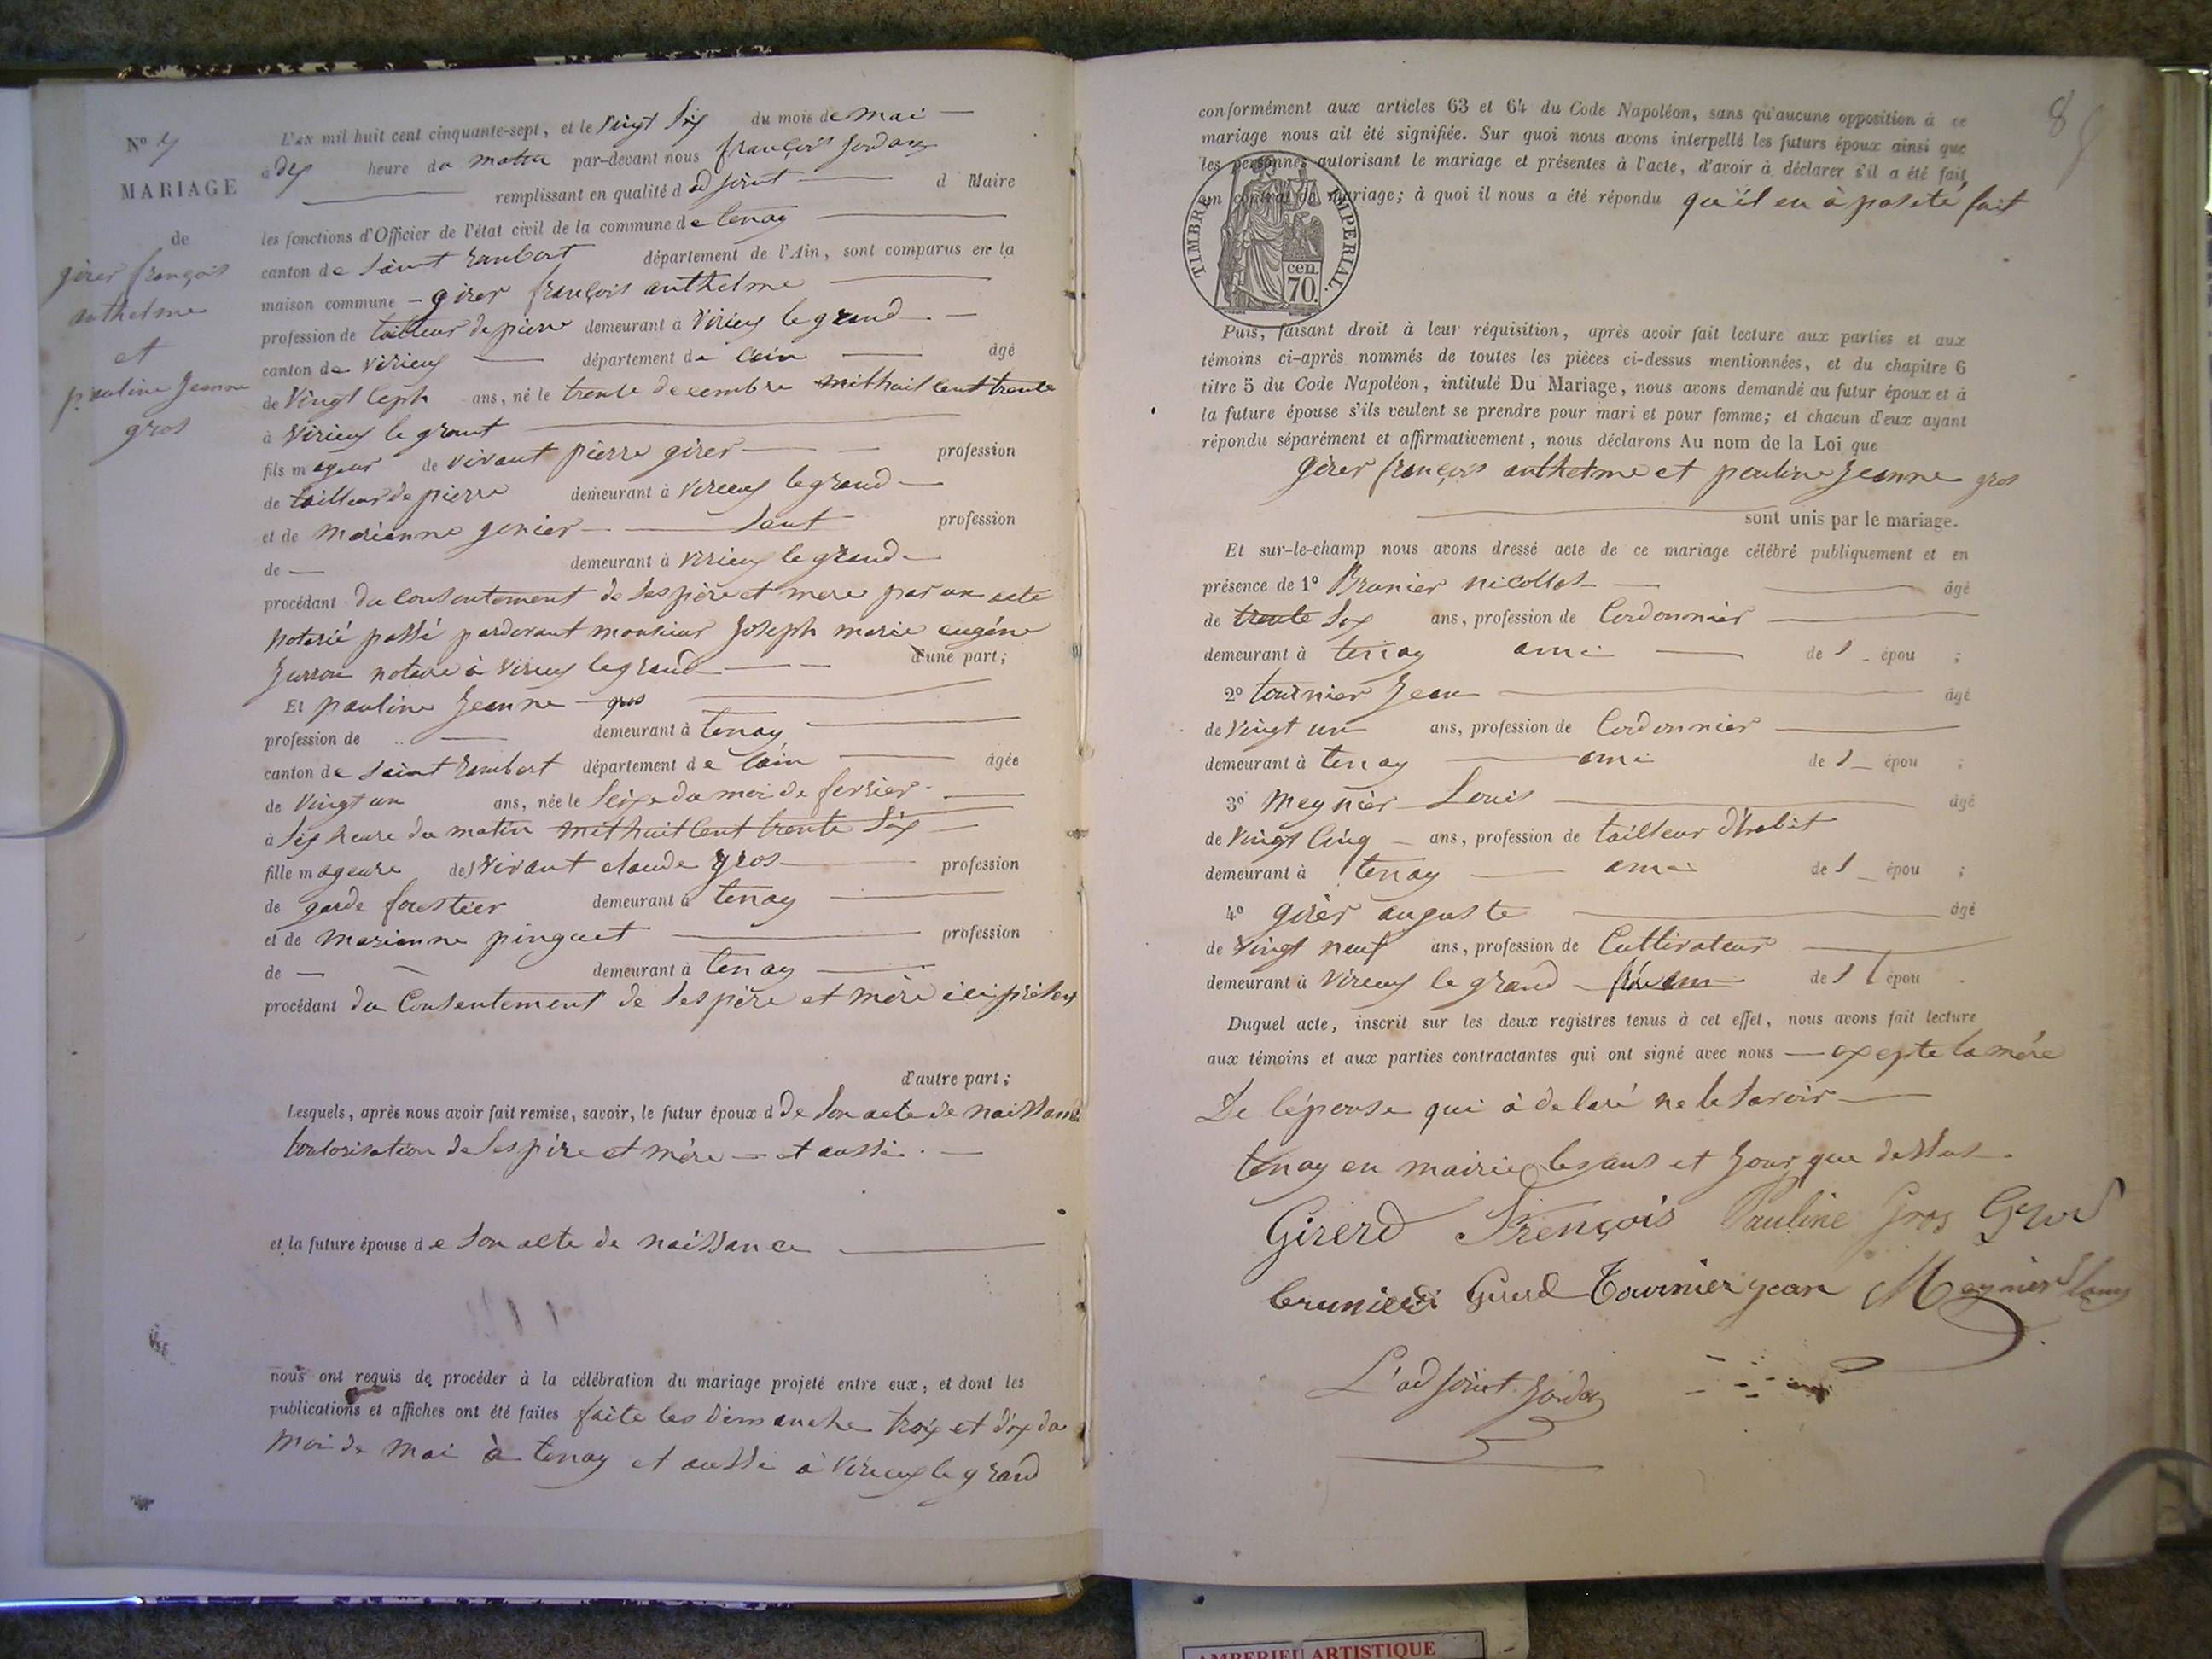 Nº 7
MARIAGE
de
girer françois
anthelme
et
pauline Jeanne
gros
L'an mil huit cent cinquante-sept, et le vingt six du mois de mai
à dix heure du matin par-devant nous françois Jordan
remplissant en qualité d adjoint d Maire
les fonctions d'Officier de l'état civil de la commune de tenay
canton de saint rambert département de l'Ain, sont comparus en la
maison commune - girer françois anthelme
profession de tailleur de pierre demeurant à virieux le grand
canton de virieux département de l'ain âgé
de vingt ceph ans, né le trente decembre mil huit cent trente
à virieux le grant
fils mageur de vivant pierre girer profession
de tailleur de pierre demeurant à virieux le grand
et de marianne genier sant profession
de demeurant à virieux le grand
procédant du consentement de ses père et mere par un acte
notarié passé pardevant monsieur Joseph marie eugéne
Jurron notaire à virieux le grand d'une part;
Et pauline Jeanne gros
profession de demeurant à tenay
canton de saint rambert département de l'ain âgée
de vingt un ans, née le seize du moi de fevrier
à six heure du matin mil huit cent trente six
fille mageure de vivant claude gros profession
de garde forestier demeurant à tenay
et de marianne pinguet profession
de demeurant à tenay
procédant du consentement de ses père et mère ici présent
d'autre part;
Lesquels, après nous avoir fait remise, savoir, le futur époux d de son acte de naissance
l'autorisation de ses père et mère et aussi
et la future épouse de son acte de naissance
nous ont requis de procéder à la célébration du mariage projeté entre eux, et dont les
publications et affiches ont été faites faite les dimanche troix et dix du
moi de mai à tenay et aussi à virieux le grand
8
conformément aux articles 63 et 64 du Code Napoléon, sans qu'aucune opposition à ce
mariage nous ait été signifiée. Sur quoi nous avons interpellé les futurs époux ainsi que
les personnes autorisant le mariage et présentes à l'acte, d'avoir à déclarer s'il a été fait
un contrat de mariage; à quoi il nous a été répondu qu'il en à pas été fait
TIMBRE IMPERIAL.
cen.
70.
Puis, faisant droit à leur réquisition, après avoir fait lecture aux parties et aux
témoins ci-après nommés de toutes les pièces ci-dessus mentionnées, et du chapitre 6
titre 5 du Code Napoléon, intitulé Du Mariage, nous avons demandé au futur époux et à
la future épouse s'ils veulent se prendre pour mari et pour femme; et chacun d'eux ayant
répondu séparément et affirmativement, nous déclarons Au nom de la Loi que
girer françois anthelme et pauline Jeanne gros
sont unis par le mariage.
Et sur-le-champ nous avons dressé acte de ce mariage célébré publiquement et en
présence de 1º Brunier nicollas âgé
de trente six ans, profession de Cordonnier
demeurant à tenay ami de s épou ;
2º tournier Jean âgé
de vingt un ans, profession de Cordonnier
demeurant à tenay ami de s épou ;
3º meynier Louis âgé
de vingt cinq ans, profession de tailleur d'habit
demeurant à tenay ami de s épou ;
4º girèr auguste âgé
de vingt neuf ans, profession de Cultivateur
demeurant à virieux le grand de l épou .
Duquel acte, inscrit sur les deux registres tenus à cet effet, nous avons fait lecture
aux témoins et aux parties contractantes qui ont signé avec nous exepte la mére
De l'épouse qui à delaré ne le savoir
tenay en mairie les ans et Jour que dessus.
Girerd François Pauline Gros Gros
brunier Girerd Tournier jean Meynier Louis
L'adjoint Jordan
AMBERIEU ARTISTIQUE